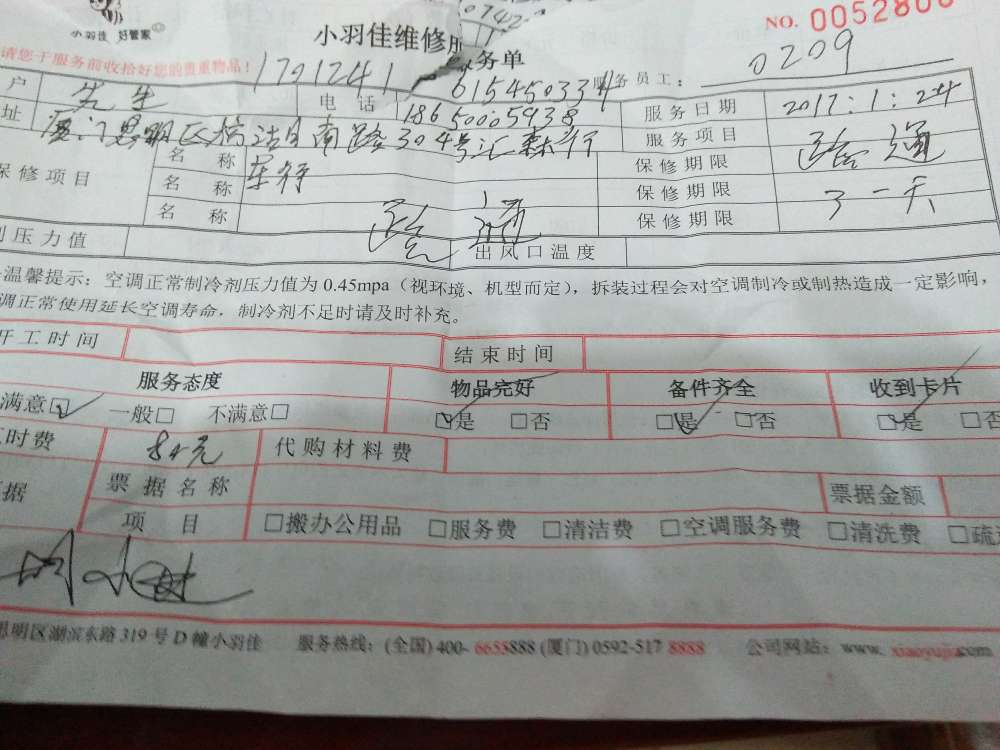 0742
NO. 0052806
小羽佳 好管家
小羽佳维修服务单
请您于服务前收拾好您的贵重物品！
1701241 615450334 服务员工： 0209
户 先生 电 话 18650005938 服务日期 2017.1.24
址 厦门思明区 南路304号汇森行 服务项目 疏通
保修项目 名 称 车行 保修期限
名 称 保修期限 3一天
名 称 疏通 保修期限
压力值 出风口温度
温馨提示：空调正常制冷剂压力值为 0.45mpa（视环境、机型而定），拆装过程会对空调制冷或制热造成一定影响，
调正常使用延长空调寿命，制冷剂不足时请及时补充。
开工时间 结束时间
服务态度 物品完好 备件齐全 收到卡片
满意☑ 一般□ 不满意□ ☑是 □否 ☑是 □否 ☑是 □否
时费 元 代购材料费
据 票据名称 票据金额
项 目 □搬办公用品 □服务费 □清洁费 □空调服务费 □清洗费 □疏
思明区湖滨东路 319 号 D 幢小羽佳 服务热线：(全国) 400- 6653888 (厦门) 0592-517 8888 公司网站：www. xiaoyujia.com